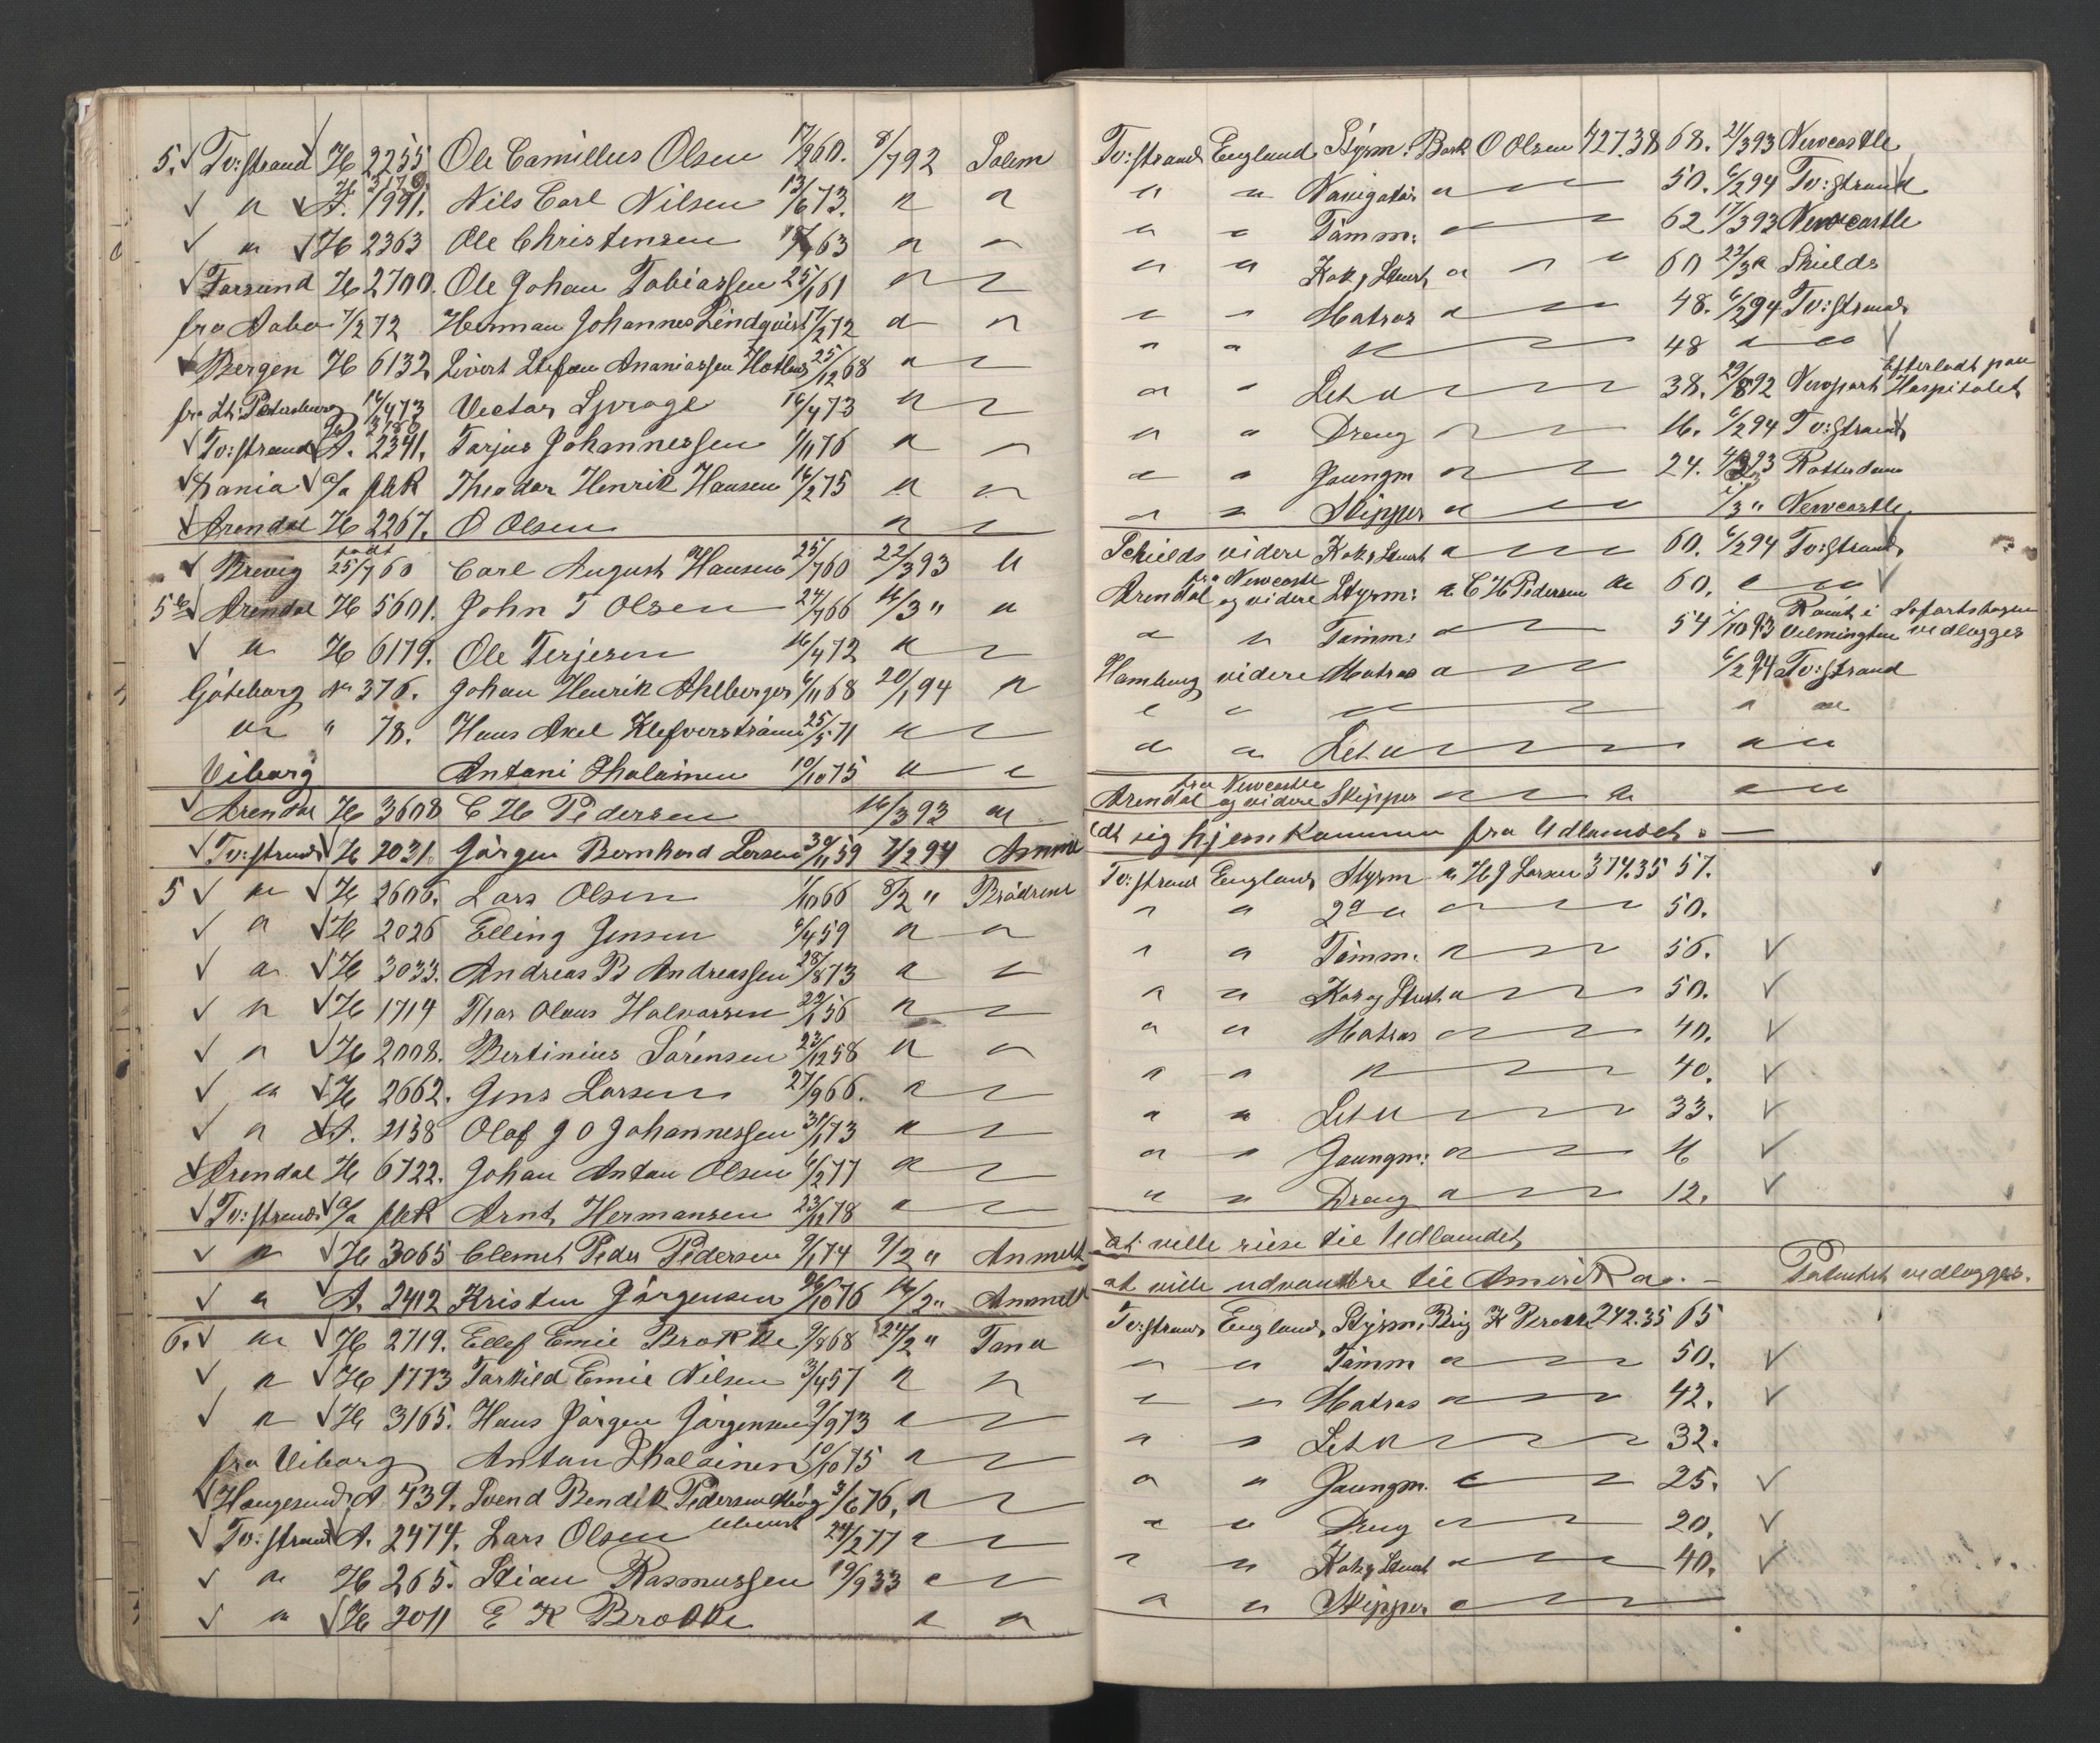 5. Tv:strand H 2255 Ole Camillus Olsen 17/2 60. 8/7 92 Salem
" A. 1991. Nils Carl Nilsen 13/6 73. " "
" H 2363 Ole Christensen 63 " "
Farsund H 2700. Ole Johan Tobiassen 25/1 61 " "
fra Aabo 7/2 72 Herman Johannes Lindqvist 7/2 72 " "
Bergen H 6132, Sivert Stefan Ananiassen 25/12 68 " "
fra St: Petersburg 16/4 73 Victor 16/4 73 " "
Tv:strand A. 2341. Tarjus Johannessen 76 " "
Dania a/a Theodor Henrik Hansen 16/2 75 " "
Arendal H 2267. O Olsen " "
Brevig født 25/7 60 Carl August Hansen 25/7 60 22/3 93 "
5 Arendal H 5601. John T Olsen 24/7 66 16/3 " "
" H 6179. Ole Terjesen 16/4 72 " "
Göteborg No 376. Johan Henrik Ahlberger 6/11 68 20/1 94 "
" " 78. Hans Axel Klefverström 25/5 71 " "
Viborg Antoni Ihalainen 10/10 75 " "
Arendal H 3608 C H Pedersen 16/3 93 "
Tv:strand H 2031. Jörgen Bernhard Larsen 30/11 59 7/2 94 Anm
5 " H 2606. Lars Olsen 1/10 66 8/2 " Brödrene
" H 2026 Elling Jensen 6/4 59 " "
" H 3033. Andreas B Andreassen 28/8 73 " "
" H 1714 Thor Olaus Halvorsen 22/1 56 " "
" H 2008. Bertinius Sörensen 23/12 58 " "
" H 2662. Jens Larsen 27/9 66. " "
" A. 2138 Olaf J O Johannessen 31/1 73 " "
Arendal H 6722. Johan Anton Olsen 6/2 77 " "
Tv:strand a/a Arnt Hermansen 23/12 78 " "
" H 3065 Clemet Peder Pedersen 9/1 74 9/2 " Anmeldt
" A. 2412 Kristen Jörgensen 26/10 76 16/2 " Anmeldt
6. " H 2719. Ellef Emil Brokke 9/8 68 24/2 " Tana
" H 1773 Tarkild Emil Nilsen 3/4 57 " "
" H 3165. Hans Jörgen Jörgensen 9/9 73 " "
fra Viborg Anton Ihalainen 10/10 75 " "
Haugesund A 739. Svend Bendik Pedersen 3/6 76, " "
Tv:strand A. 2474. Lars Olsen 24/2 77 " "
" H 265. Stian Rasmussen 19/9 33 " "
" H 2011 E K Brokke " "
Tv:strand England Styrm. Bark O Olsen 427.38 68. 21/3 93 Newcastle
" " Navigatör " 50. 6/2 94 Tv:strand
" " Tömm: " 62 17/3 93 Newcastle
" " Kok & Stuert " 60 22/3 " Shields
" " Matros " 48. 6/2 94 Tv:strand
" " " 48 " "
" " Let " 38. 29/8 92 Newport Efterladt paa Hospitalet
" " Dreng " 16. 6/2 94 Tv:strand
" " Jungm " 24. 93 Rotterdam
" " Skipper " /3 " Newcastle
Schields videre Kok & Stuert " 60. 6/2 94 Tv:strand
Arendal fra Newcastle og videre Styrm: " C H Pedersen " 60. " "
" " Tömm: " 54 /10 93 Römt i Vilmington Sofartsbogen vedlægges
Hamburg videre Matros " 6/2 94 Tv:strand
" " " " "
" " Let " " "
Arendal fra Newcastle og videre Skipper " " " "
ldt sig hjemkommen fra Udlandet. —
Tv:strand England Styrm " H J Larsen 374.35 57.
" " 2d " " 50.
" " Tömm. " 56.
" " Kok og Stuert " 50.
" " Matros " 40.
" " " 40.
" " Let " 33.
" " Jungm: " 16
" " Dreng " 12.
at ville reise til Udlandet
at ville udvandre til Amerika. — Patentet vedlægges.
Tv:strand England Styrm. Brig 242.35 65
" " Tömm " 50.
" " Matros " 42.
" " Let " 32.
" " Jungm. " 25.
" " Dreng " 20.
" " Kok & Stuert " 40.
" " Skipper "